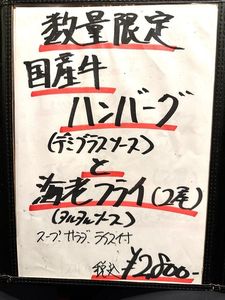 数量限定
国産牛
ハンバーグ
(デミグラスソース)
と
海老フライ(2尾)
(タルタルソース)
スープ サラダ ライス付
税込 ¥2,800-